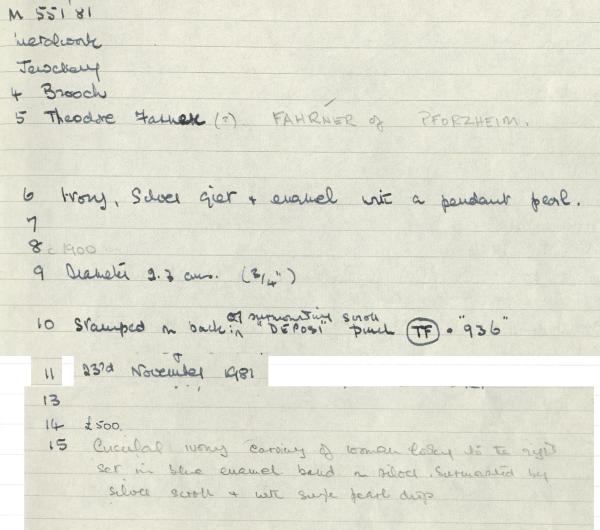 M 551'81
Metalwork
Jewellery
4 Brooch
5 Theodore Fahner (?) FAHRNER of PFORZHEIM.
6 Ivory, Silver giet + enamel with a pendant pearl.
7
8 c 1900
9 Diameter 2.3 cms. (3/4")
of surmounting scroll
10 Stamped on back in "DEPOSÉ" punch TF . "936"
11 23rd November 1981
13
14 £500.
15 Circular ivory carving of woman looking to the right
set in blue enamel band on silver. Surmounted by
silver scroll & with single pearl drop